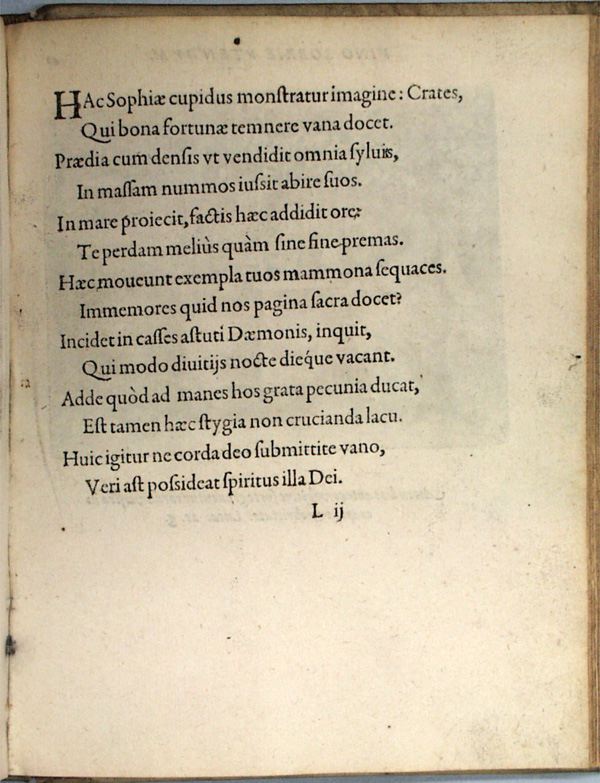 HAc Sophiæ cupidus monſtratur imagine: Crates,
Qui bona fortunæ temnere vana docet.
Prædia cum denſis vt vendidit omnia ſyluis,
In maſſam nummos iuſsit abire ſuos.
In mare proiecit, factis hæc addidit ore:
Te perdam meliùs quàm ſine fine premas.
Hæc moueunt exempla tuos mammona ſequaces.
Immemores quid nos pagina ſacra docet?
Incidet in caſſes aſtuti Dæmonis, inquit,
Qui modo diuitijs nocte dieque vacant.
Adde quòd ad manes hos grata pecunia ducat,
Eſt tamen hæc ſtygia non crucianda lacu.
Huic igitur ne corda deo ſubmittite vano,
Veri aſt poſsideat ſpiritus illa Dei.
L ij